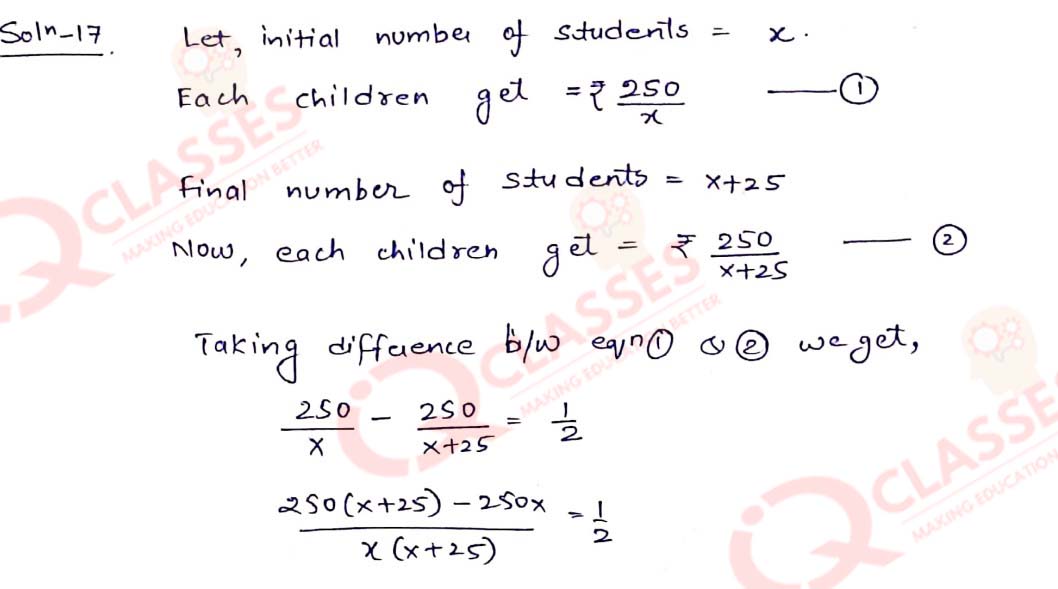 Soln-17. Let, initial number of students = x.
Each children get = ₹ 250/x —— ①
Final number of students = x+25
Now, each children get = ₹ 250/x+25 —— ②
Taking difference b/w eqn① & ② we get,
250/x - 250/x+25 = 1/2
250(x+25) - 250x / x(x+25) = 1/2
CLASSES
MAKING EDUCATION BETTER
CLASSES
MAKING EDUCATION BETTER
CLASSE
MAKING EDUCATION